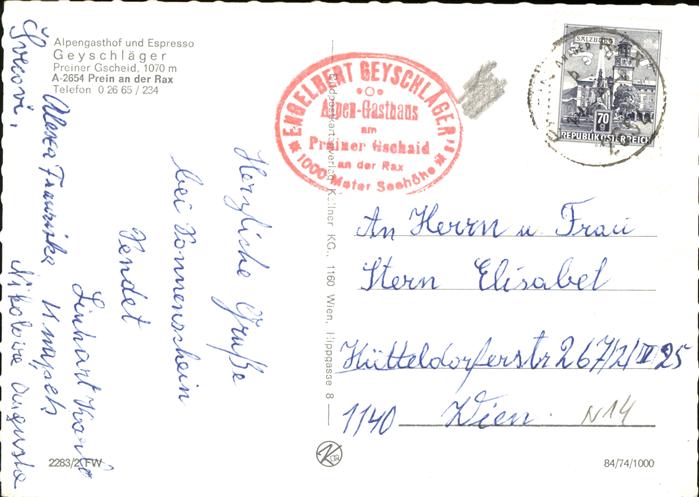 Alpengasthof und Espresso
Geyschläger
Preiner Gscheid, 1070 m
A-2654 Prein an der Rax
Telefon 0 26 65 / 234
ENGELBERT GEYSCHLÄGER'S
Alpen-Gasthaus
am
Preiner Gschaid
an der Rax
1000 Meter Seehöhe
SALZBURG
70
REPUBLIK ÖSTERREICH
Herzliche Grüße
bei Sonnenschein
Sendet
Linhart Karl
Alexa Franziska
An Herrn u. Frau
Stern Elisabet
Hütteldorferstr 267/2/IV 25
1140 Wien.
N14
Kellner KG., 1160 Wien, Hippgasse 8
2283/2 FW
84/74/1000